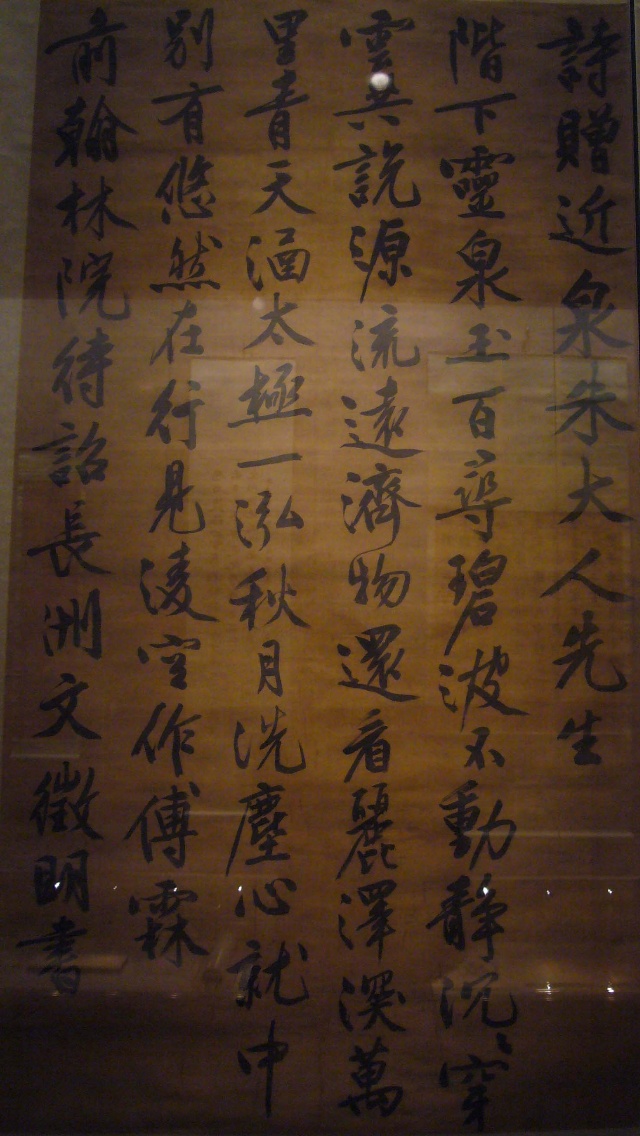 詩贈近泉朱大人先生
階下靈泉玉百尋碧波不動靜沉〻穿
雲共說源流遠濟物還看麗澤深萬
里青天涵太極一泓秋月洗塵心就中
別有悠然在行見淩空作傅霖
前翰林院待詔長洲文徵明書